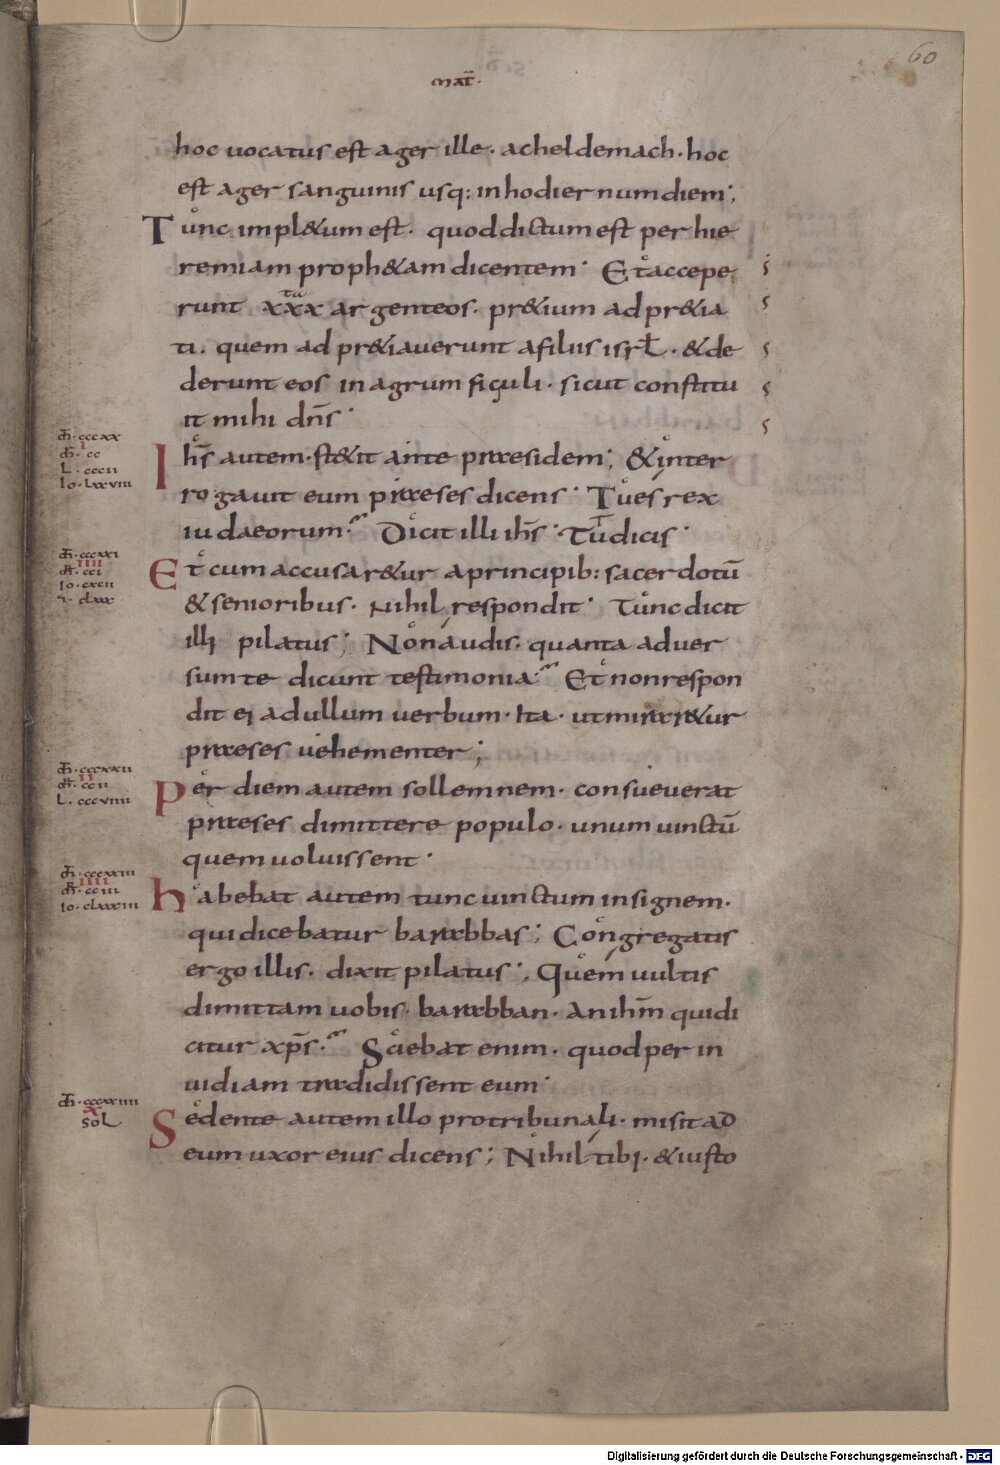 60
MAT̄.
hoc uocatus est ager ille. acheldemach. hoc
est ager sanguinis usq: in hodiernum diem;
Tunc impl&um est. quod dictum est per hie
remiam proph&am dicentem. Et accepe
runt xxx ta argenteos. pr&ium adpr&ia
ti. quem adpr&iauerunt afiliis isrł. &de
derunt eos in agrum figuli. sicut constitu
it mihi dn̄s.
m̄. cccxx
I
m̄. cc
L. cccii
Io. lxxviii
Ihs̄ autem. st&it ante praesidem; &inter
rogauit eum praeses dicens. Tu es rex
iudaeorum. Dicit illi ihs̄. Tu dicis.
m̄. cccxxi
IIII
m̄. cci
Io. cxcii
Et cum accusar&ur aprincipib: sacerdotū
&senioribus. Nihil respondit. Tunc dicit
illi pilatus; Non audis. quanta aduer
sum te dicunt testimonia. Et non respon
dit ei ad ullum uerbum. Ita. ut mirar&ur
praeses uehementer;
m̄. cccxxii
II
m̄. ccii
L. cccviiii
Per diem autem sollemnem. consueuerat
praeses dimittere populo. unum uinctū
quem uoluissent.
m̄. cccxxiii
IIII
m̄. cciii
Io. clxxxiii
habebat autem tunc uinctum insignem.
qui dicebatur barabbas; Congregatis
ergo illis. dixit pilatus; Quem uultis
dimittam uobis. barabban. An ihm̄ qui di
citur xp̄s. Sciebat enim. quod per in
uidiam tradidissent eum.
m̄. cccxxiiii
X
SOL
Sedente autem illo pro tribunali. misit ad
eum uxor eius dicens; Nihil tibi. &iusto
Digitalisierung gefördert durch die Deutsche Forschungsgemeinschaft - DFG